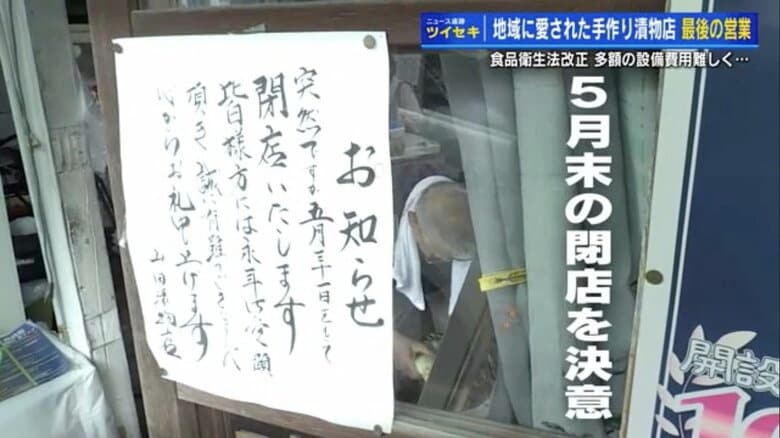 ニュース追跡
ツイセキ
地域に愛された手作り漬物店 最後の営業
食品衛生法改正 多額の設備費用難しく…
5月末の閉店を決意
お知らせ
突然ですが五月三十一日をもって
閉店いたします
皆様方には永年御愛顧
頂き誠に有難うございました
心からお礼申上げます
山田漬物店
開設